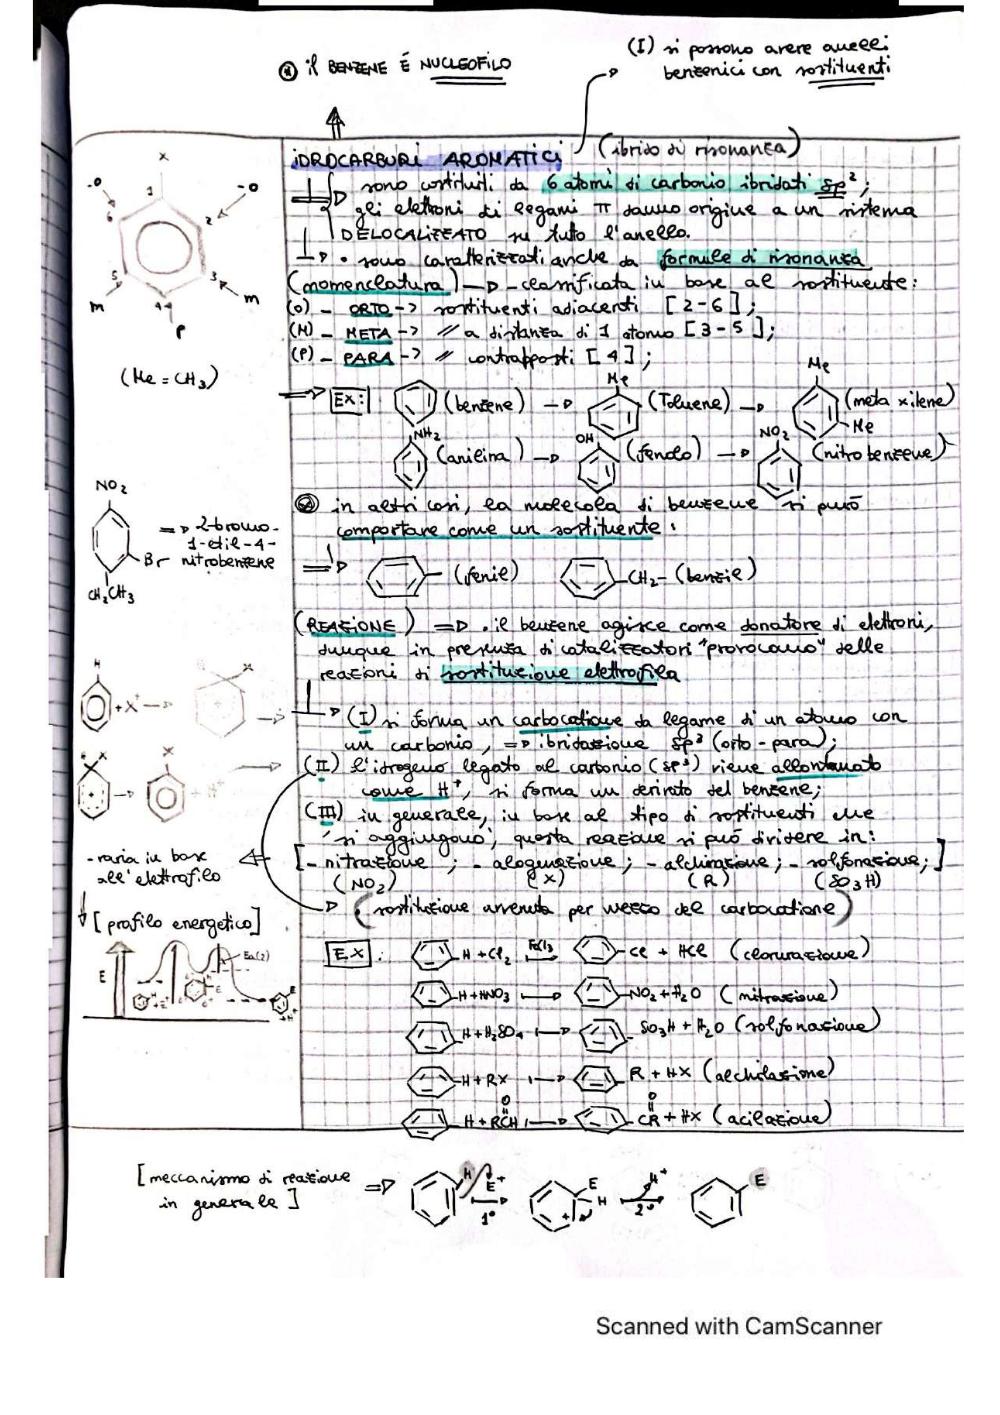 ⊛ il BENZENE É NUCLEOFILO
(I) si possono avere anelli
benzenici con sostituenti
IDROCARBURI AROMATICI (ibrido di risonanza)
sono costituiti da 6 atomi di carbonio ibridati sp²;
gli elettroni di legami π danno origine a un sistema
DELOCALIZZATO su tutto l'anello.
• sono caratterizzati anche da formule di risonanza
(nomenclatura) -> - classificata in base al sostituente:
(O) - ORTO -> sostituenti adiacenti [2-6];
(M) - META -> // a distanza di 1 atomo [3-5];
(P) - PARA -> // contrapposti [4];
x
-o
-o
1
2
3
4
5
6
m
m
p
(Me = CH₃)
Ex: (benzene) -> Me (Toluene) -> Me Me (meta xilene)
NH₂ (anilina) -> OH (fenolo) -> NO₂ (nitrobenzene)
⊛ in altri casi, la molecola di benzene si può
comportare come un sostituente:
=> - (fenil) CH₂- (benzil)
NO₂
Br
CH₂CH₃
=> 2-bromo-
1-etil-4-
nitrobenzene
(REAZIONE) => . il benzene agisce come donatore di elettroni,
dunque in presenza di catalizzatori "provocano" delle
reazioni di sostituzione elettrofila
-> (I) si forma un carbocatione da legame di un atomo con
un carbonio, => ibridazione sp³ (orto-para);
(II) l'idrogeno legato al carbonio (sp³) viene allontanato
come H⁺, si forma un derivato del benzene;
(III) in generale, in base al tipo di sostituenti che
si aggiungono, questa reazione si può dividere in:
[- nitrazione ; - alogenazione ; - alchilazione ; - solfonazione ;]
(NO₂) (X) (R) (SO₃H)
-> (sostituzione avvenuta per mezzo del carbocatione)
H
+X⁺ ->
x
x x
x
+ H⁺
- varia in base
all'elettrofilo
[profilo energetico]
E
Ea(2)
EX: H + Cl₂ FeCl₃ -> Cl + HCl (clorurazione)
H + HNO₃ -> NO₂ + H₂O (nitrazione)
H + H₂SO₄ -> SO₃H + H₂O (solfonazione)
H + RX -> R + HX (alchilazione)
H + RCH O -> CR O + HX (acilazione)
[meccanismo di reazione
in generale] => H E⁺ 1° E H + H⁺ 2° E
Scanned with CamScanner